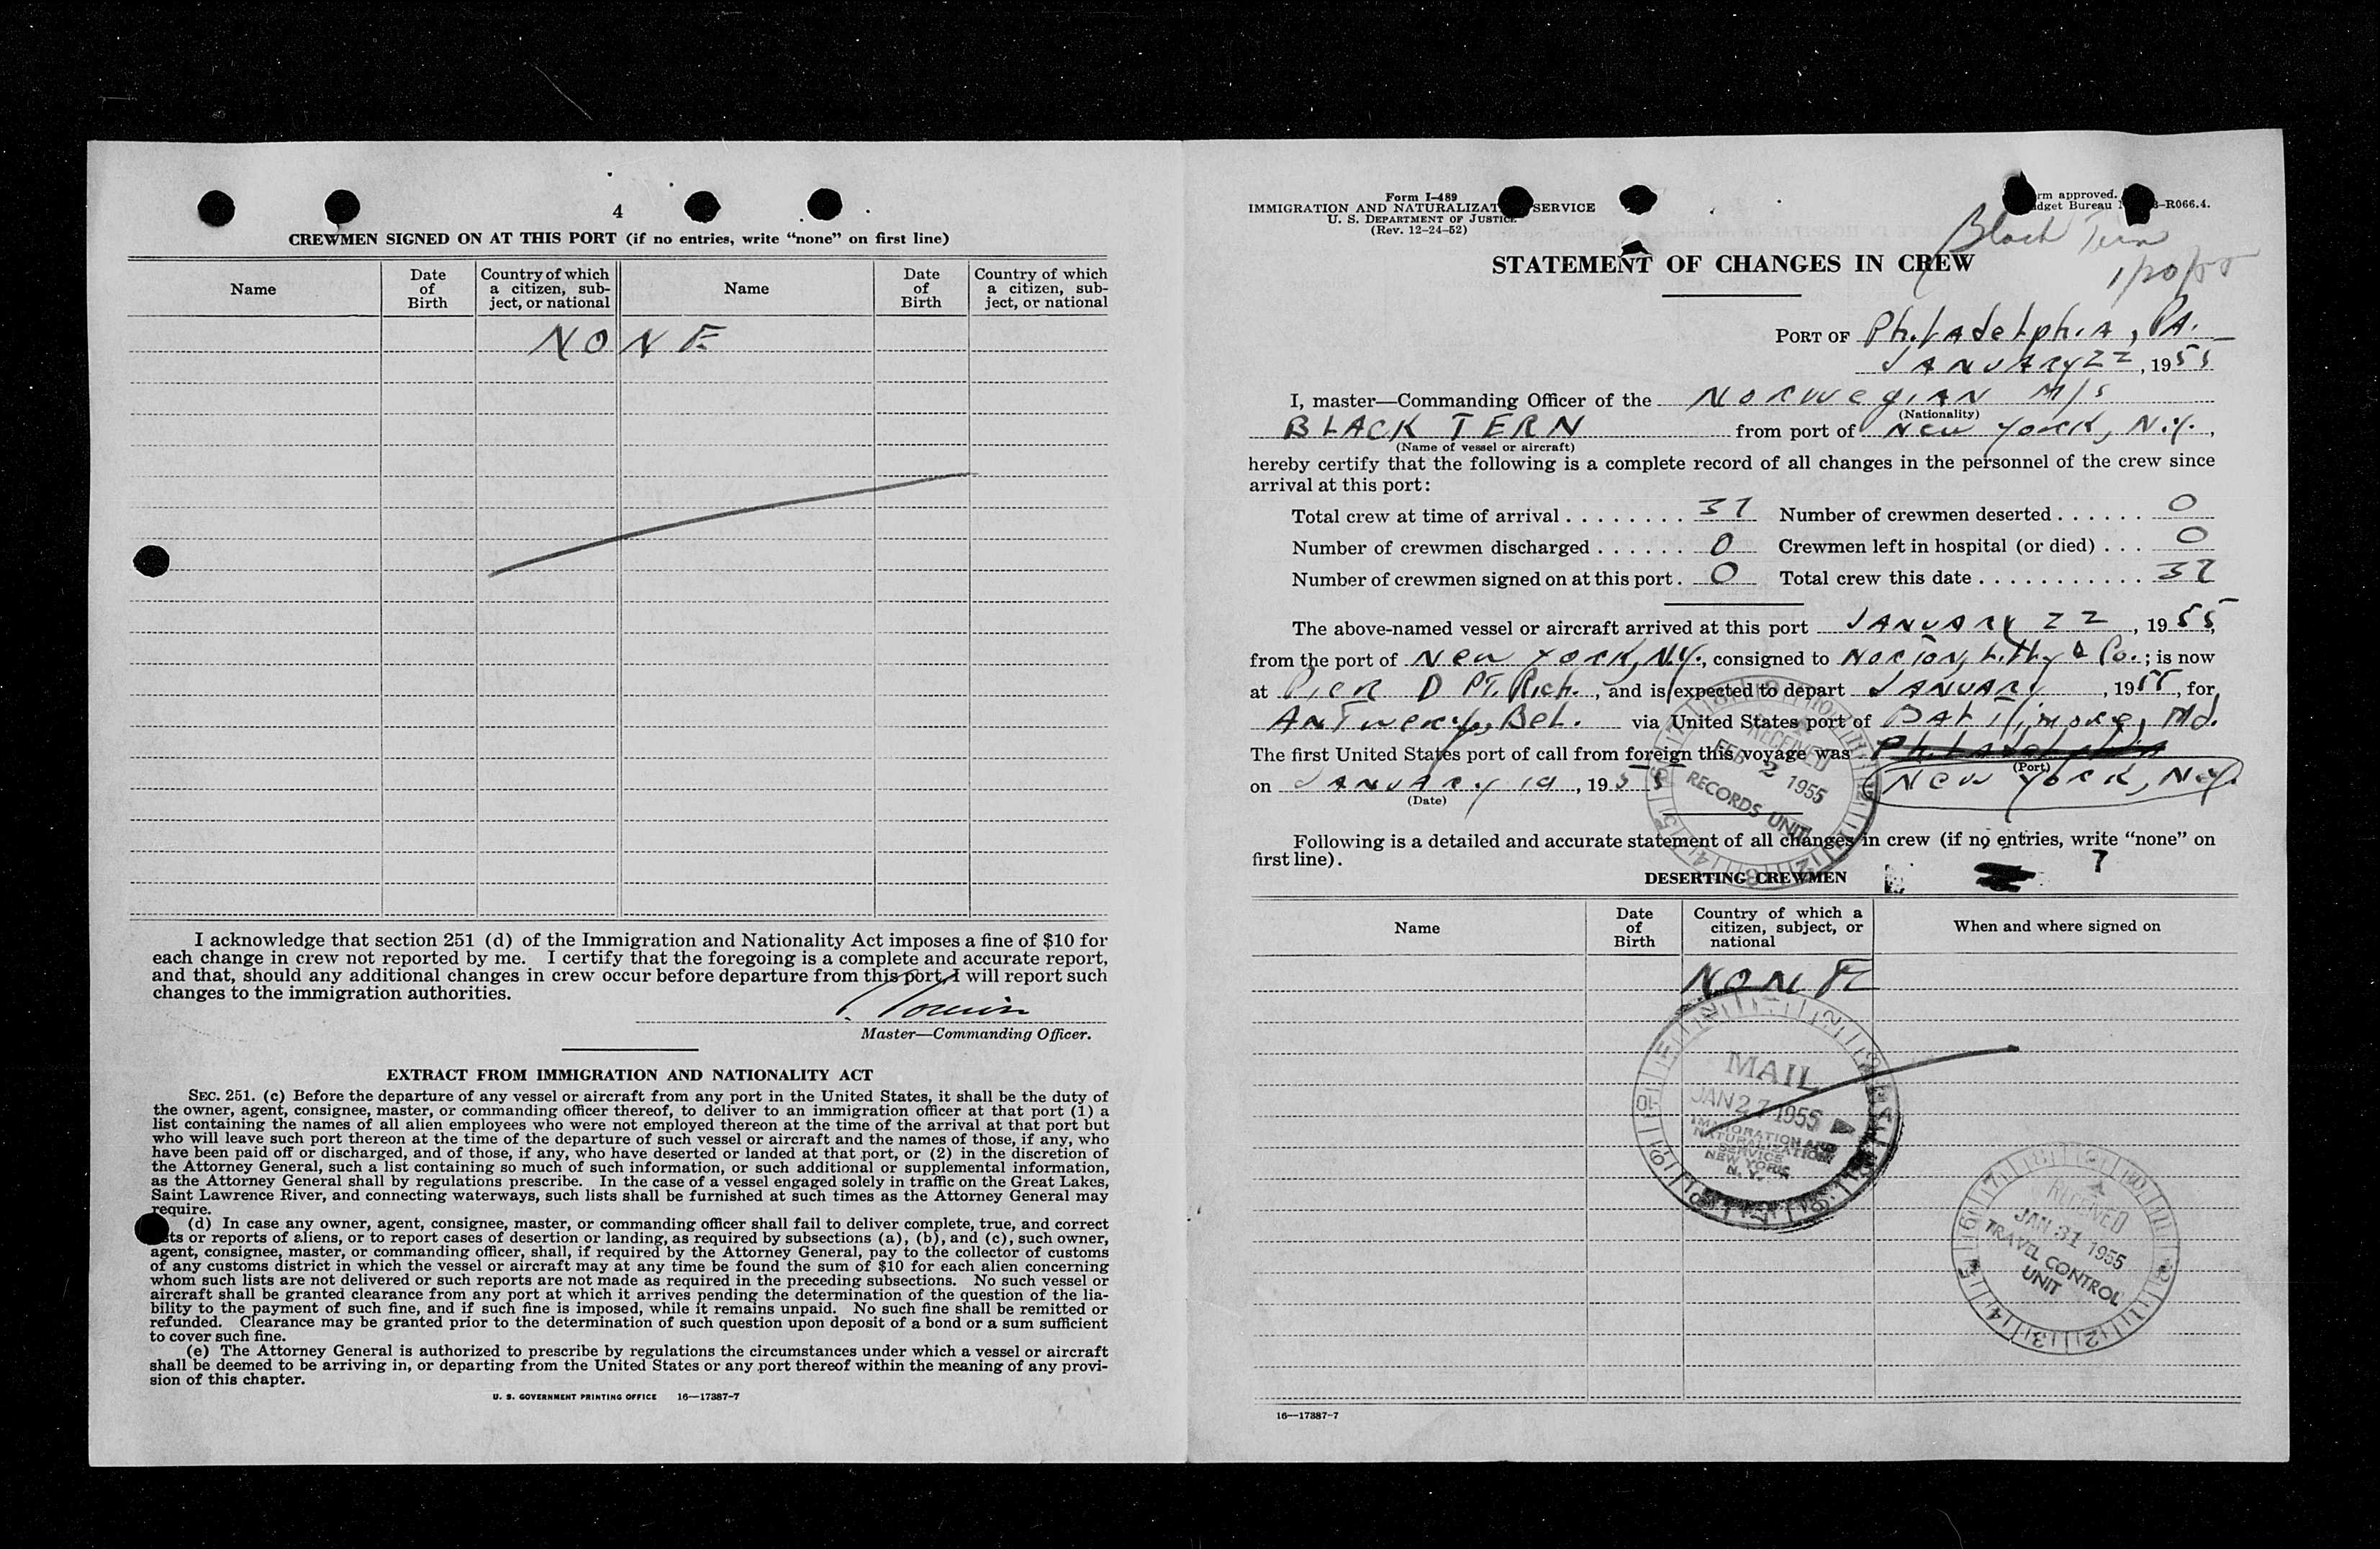 4
CREWMEN SIGNED ON AT THIS PORT (if no entries, write “none” on first line)
Name Date of Birth Country of which a citizen, subject, or national Name Date of Birth Country of which a citizen, subject, or national
NONE
I acknowledge that section 251 (d) of the Immigration and Nationality Act imposes a fine of $10 for
each change in crew not reported by me. I certify that the foregoing is a complete and accurate report,
and that, should any additional changes in crew occur before departure from this port, I will report such
changes to the immigration authorities.
Master—Commanding Officer.
EXTRACT FROM IMMIGRATION AND NATIONALITY ACT
SEC. 251. (c) Before the departure of any vessel or aircraft from any port in the United States, it shall be the duty of
the owner, agent, consignee, master, or commanding officer thereof, to deliver to an immigration officer at that port (1) a
list containing the names of all alien employees who were not employed thereon at the time of the arrival at that port but
who will leave such port thereon at the time of the departure of such vessel or aircraft and the names of those, if any, who
have been paid off or discharged, and of those, if any, who have deserted or landed at that port, or (2) in the discretion of
the Attorney General, such a list containing so much of such information, or such additional or supplemental information,
as the Attorney General shall by regulations prescribe. In the case of a vessel engaged solely in traffic on the Great Lakes,
Saint Lawrence River, and connecting waterways, such lists shall be furnished at such times as the Attorney General may
require.
(d) In case any owner, agent, consignee, master, or commanding officer shall fail to deliver complete, true, and correct
sts or reports of aliens, or to report cases of desertion or landing, as required by subsections (a), (b), and (c), such owner,
agent, consignee, master, or commanding officer, shall, if required by the Attorney General, pay to the collector of customs
of any customs district in which the vessel or aircraft may at any time be found the sum of $10 for each alien concerning
whom such lists are not delivered or such reports are not made as required in the preceding subsections. No such vessel or
aircraft shall be granted clearance from any port at which it arrives pending the determination of the question of the lia-
bility to the payment of such fine, and if such fine is imposed, while it remains unpaid. No such fine shall be remitted or
refunded. Clearance may be granted prior to the determination of such question upon deposit of a bond or a sum sufficient
to cover such fine.
(e) The Attorney General is authorized to prescribe by regulations the circumstances under which a vessel or aircraft
shall be deemed to be arriving in, or departing from the United States or any port thereof within the meaning of any provi-
sion of this chapter.
U. S. GOVERNMENT PRINTING OFFICE 16—17387-7
Form I-489
IMMIGRATION AND NATURALIZAT SERVICE
U. S. DEPARTMENT OF JUSTICE
(Rev. 12-24-52)
rm approved.
dget Bureau -R066.4.
Black Tern
1/20/55
STATEMENT OF CHANGES IN CREW
PORT OF Philadelphia, PA.
JANUARY 22, 1955
I, master—Commanding Officer of the Norwegian M/S
(Nationality)
BLACK TERN from port of New York, N.Y.,
(Name of vessel or aircraft)
hereby certify that the following is a complete record of all changes in the personnel of the crew since
arrival at this port:
Total crew at time of arrival 37 Number of crewmen deserted 0
Number of crewmen discharged 0 Crewmen left in hospital (or died) 0
Number of crewmen signed on at this port 0 Total crew this date 37
The above-named vessel or aircraft arrived at this port JANUARY 22, 1955,
from the port of New York, N.Y., consigned to Norton, Lilly & Co.; is now
at Pier D PT. Rich., and is expected to depart JANUARY , 1955, for
Antwerp, Bel. via United States port of Baltimore, Md.
The first United States port of call from foreign this voyage was Philadelphia
(Port)
on JANUARY 19, 1955 New York, N.Y.
(Date)
RECEIVED
FEB 2 1955
RECORDS UNIT
Following is a detailed and accurate statement of all changes in crew (if no entries, write “none” on
first line).
7
DESERTING CREWMEN
Name Date of Birth Country of which a citizen, subject, or national When and where signed on
NONE
MAIL
JAN 27 1955
IMMIGRATION AND
NATURALIZATION
SERVICE
NEW YORK
N. Y.
RECEIVED
JAN 31 1955
TRAVEL CONTROL
UNIT
16—17387-7